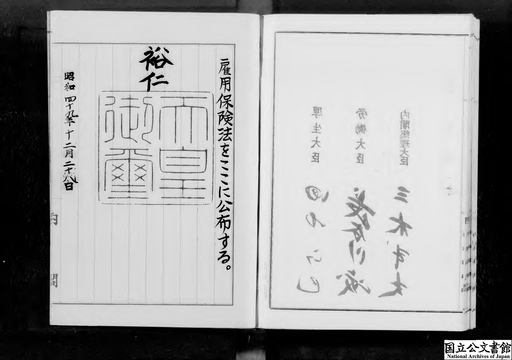 内閣総理大臣 三木武夫
労働大臣 長谷川峻
厚生大臣 田中正巳
雇用保険法をここに公布する。
裕仁
天皇
御璽
昭和四十九年十二月二十八日
内閣
国立公文書館
National Archives of Japan